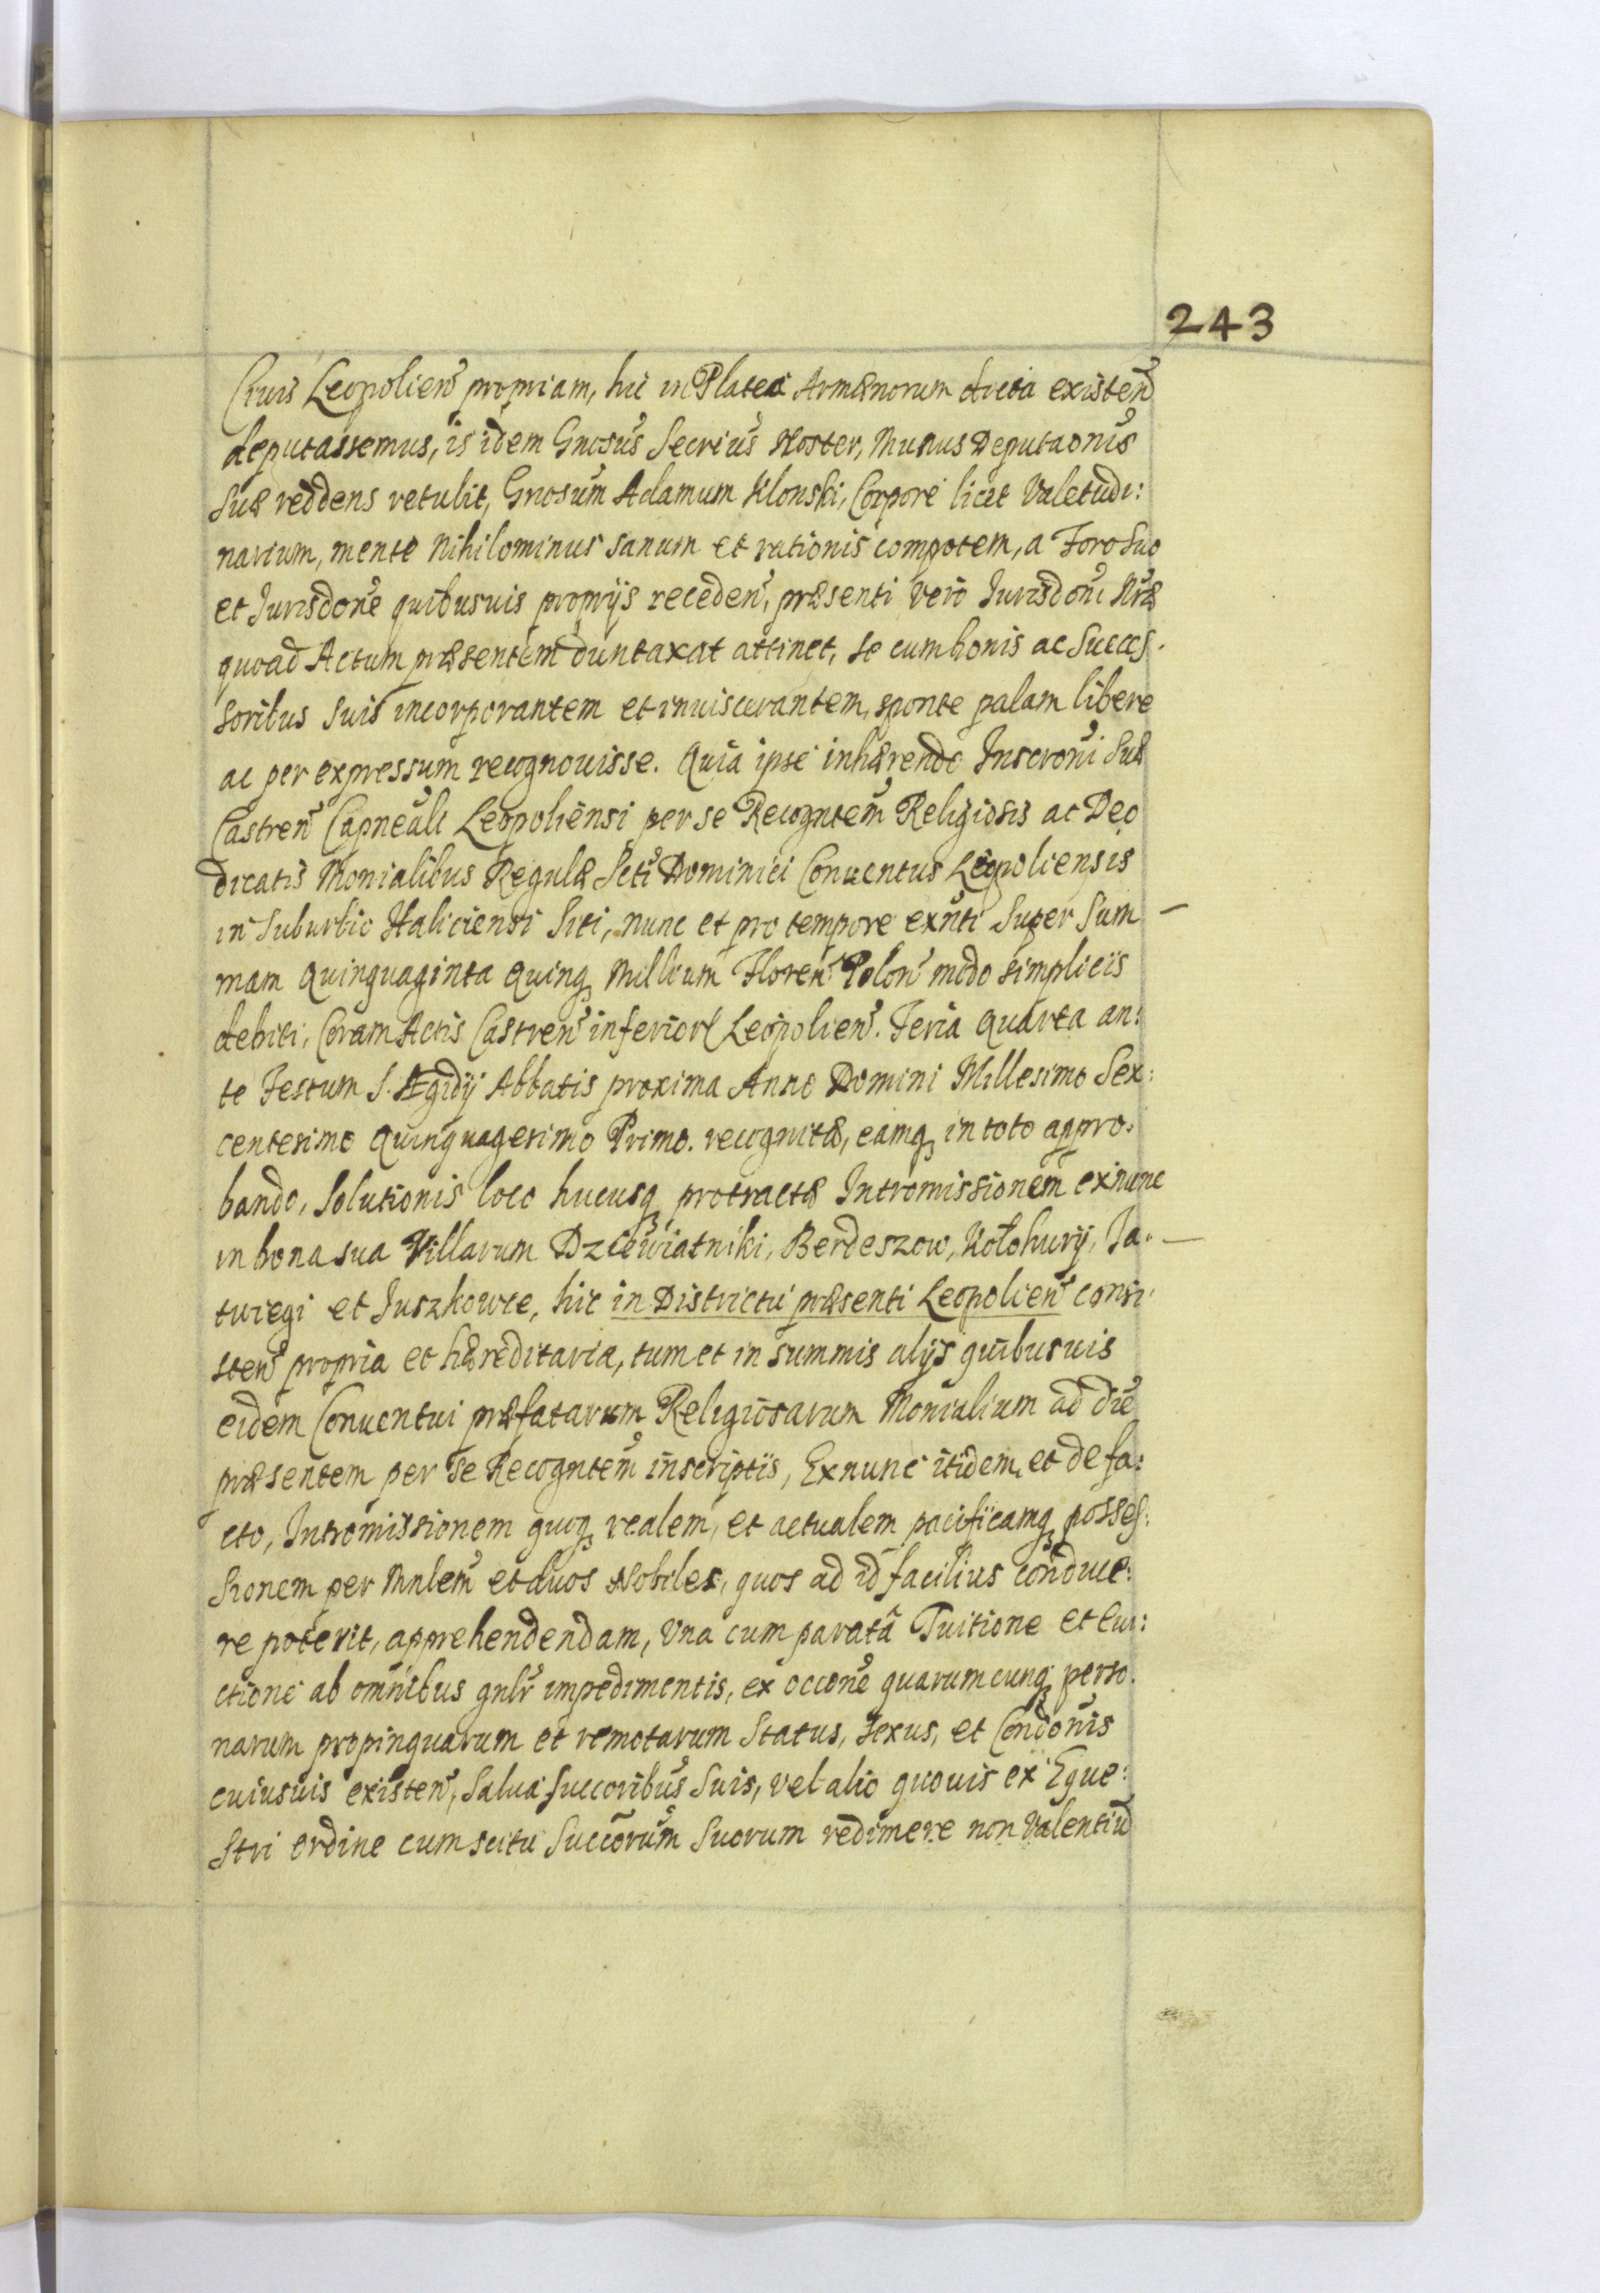 243
Ciuis Leopolien̄ propriam, hic in Platea Armænorum dicta existen̄
deputassemus, is idem Gnosūs Secriūs Noster, Munus Deputaōnis
Suæ reddens retulit, Gnosūm Adamum Klonski, Corpore licet Valetudi:
narium, mente nihilominus sanum et rationis compotem, a Foro Suo
et Jurisdōne quibusuis proprijs receden̄, præsenti vero Jurisdōni Nræ
quoad Actum præsentem duntaxat attinet, se cum bonis ac Succes.
soribus Suis incorporantem et inuiscerantem, sponte palam libere
ac per expressum recognouisse. Quia ipse inhærendo Inscrōni Suæ
Castren̄ Capneāli Leopoliensi per se Recogntēm Religiosis ac Deo
dicatis Monialibus Regulæ Scti Dominici Conuentus Leopoliensis
in Suburbio Haliciensi Siti, nunc et pro tempore exnti Super Sum
mam Quinquaginta Quinq Millium Floren̄ Polon̄ modo simplicis
debiti, Coram Actis Castren̄ inferiorl Leopolien̄. Feria Quarta an:
te Festum S. Ægidij Abbatis proxima Anno Domini Millesimo Sex:
centesimo Quinquagesimo Primo. recognitæ, eamq in toto appro.
bando, Solutionis loco hucusq protractæ Intromissionem exnunc
in bona sua Villarum Dziewiatniki, Berdeszow, Kołohury, Ja.
turegi et Juszkowce, hic in Districtu præsenti Leopolien̄ consi.
sten̄ propria et hæreditaria, tum et in summis alijs quibusuis
eidem Conuentui præfatarum Religiosarum Monialium ad diē
præsentem per se Recogntēm inscriptis, Exnunc itidem, et de fa:
cto, Intromissionem quoq realem, et actualem pacificamq posses:
Sionem per Mnlem̄ et duos Nobiles, quos ad id facilius conduce:
re poterit, apprehendendam, Una cum paratā Tuitione et Eui:
ctione ab omnibus gnlr̄ impedimentis, ex occōne quarumcunq perso.
narum propinquarum et remotarum Status, Sexus, et Condōnis
cuiusuis existen̄, Salua Succoribūs Suis, vel alio quouis ex Eque:
Stri ordine cum scitu Succorūm Suorum redimere non Valentiū